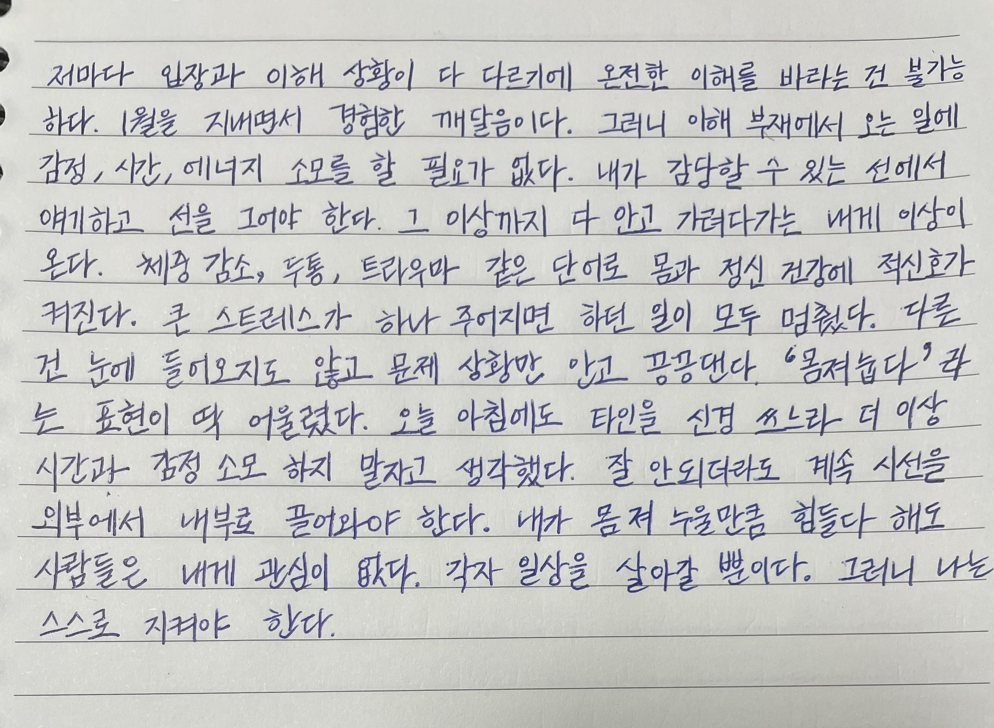 저마다 입장과 이해 상황이 다 다르기에 온전한 이해를 바라는 건 불가능
하다. 1월을 지내면서 경험한 깨달음이다. 그러니 이해 부재에서 오는 일에
감정, 시간, 에너지 소모를 할 필요가 없다. 내가 감당할 수 있는 선에서
얘기하고 선을 그어야 한다. 그 이상까지 다 안고 가려다가는 내게 이상이
온다. 체중 감소, 두통, 트라우마 같은 단어로 몸과 정신 건강에 적신호가
켜진다. 큰 스트레스가 하나 주어지면 하던 일이 모두 멈췄다. 다른
건 눈에 들어오지도 않고 문제 상황만 안고 끙끙댄다. ‘몸져눕다’ 라
는 표현이 딱 어울렸다. 오늘 아침에도 타인을 신경 쓰느라 더 이상
시간과 감정 소모 하지 말자고 생각했다. 잘 안되더라도 계속 시선을
외부에서 내부로 끌어와야 한다. 내가 몸 져 누울만큼 힘들다 해도
사람들은 내게 관심이 없다. 각자 일상을 살아갈 뿐이다. 그러니 나는
스스로 지켜야 한다.